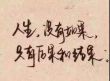 人生，没有如果，
只有后果和结果．